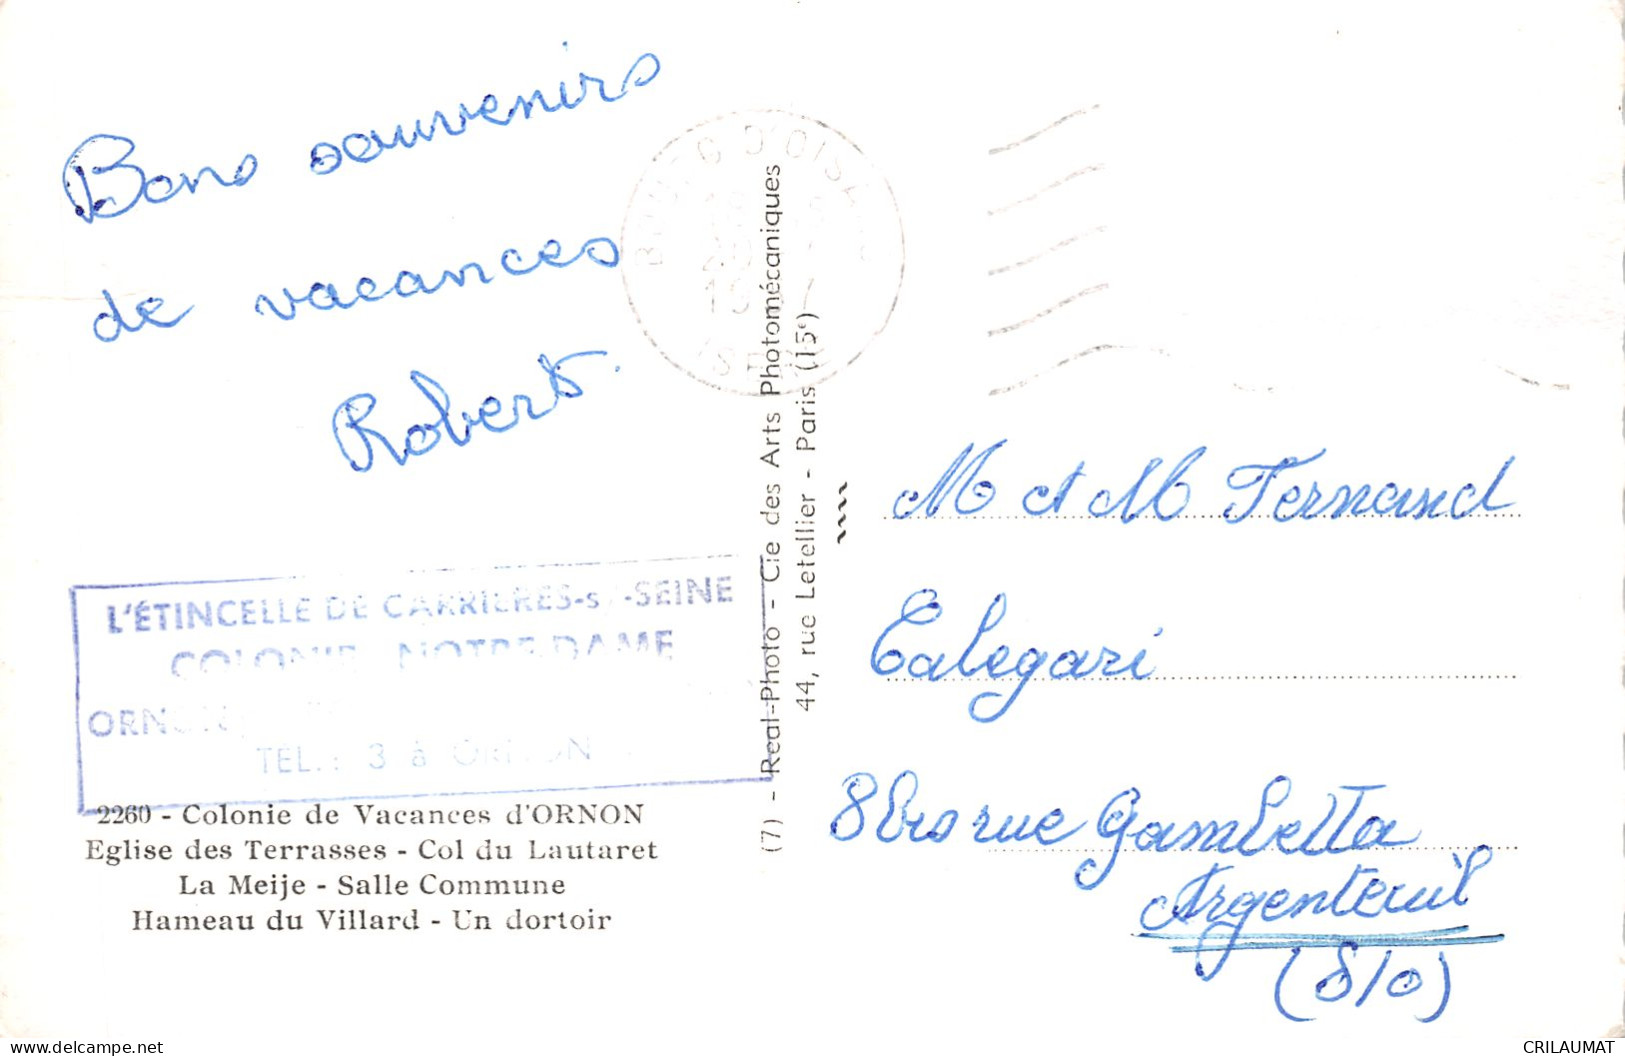 Bons souvenirs
de vacances
Robert.
L'ÉTINCELLE DE CARRIERES-s/-SEINE
COLONIE NOTRE-DAME
ORNON
TEL. : 3 à ORNON
2260 - Colonie de Vacances d'ORNON
Eglise des Terrasses - Col du Lautaret
La Meije - Salle Commune
Hameau du Villard - Un dortoir
BOURG D'OISANS
ISERE
(7) - Real-Photo - Cie des Arts Photomécaniques
44, rue Letellier - Paris (15e)
M et M Fernand
Calegari
8 bis rue Gambetta
Argenteuil
(S/O)
www.delcampe.net
CRILAUMAT